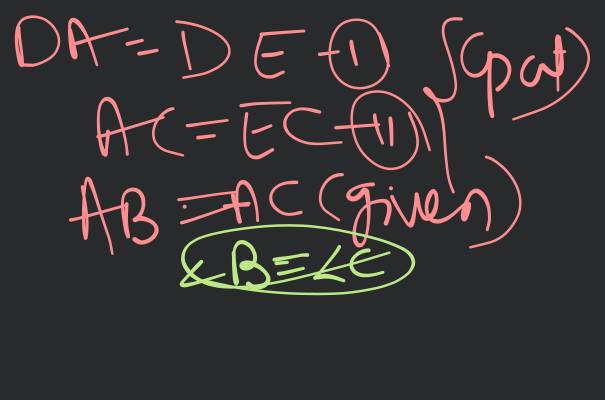 DA = DE - ①
AC = EC - ⑪ } (cpct)
AB = AC (given)
∠B = ∠C